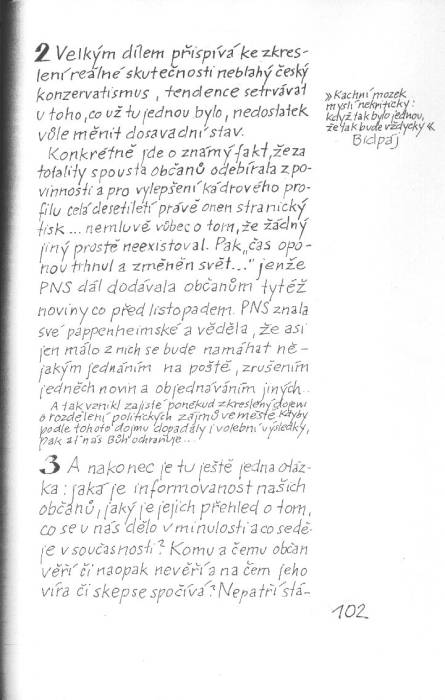 2 Velkým dílem přispívá ke zkres-
lení reálné skutečnosti neblahý český
konzervatismus, tendence setrvávat
u toho, co už tu jednou bylo, nedostatek
vůle měnit dosavadní stav.
Konkrétně jde o známý fakt, že za
totality spousta občanů odebírala z po-
vinnosti a pro vylepšení kádrového pro-
filu celá desetiletí právě onen stranický
tisk... nemluvě vůbec o tom, že žádný
jiný prostě neexistoval. Pak „čas opo-
nou trhnul a změněn svět..." jenže
PNS dál dodávala občanům tytéž
noviny co před listopadem. PNS znala
své pappenheimské a věděla, že asi
jen málo z nich se bude namáhat ně-
jakým jednáním na poště, zrušením
jedněch novin a objednáváním jiných...
A tak vznikl zajisté poněkud zkreslený dojem
o rozdělení politických zájmů ve městě. Kdyby
podle tohoto dojmu dopadály i volební výsledky,
pak ať nás Bůh ochraňuje...
3 A nakonec je tu ještě jedna otáz-
ka: jaká je informovanost našich
občanů, jaký je jejich přehled o tom,
co se u nás dělo v minulosti a co se dě-
je v současnosti? Komu a čemu občan
věří či naopak nevěří a na čem jeho
víra či skepse spočívá? Nepatří stá-
»Kachní mozek
myslí nekriticky:
když tak bylo jednou,
že tak bude vždycky«
Bidpaj
102